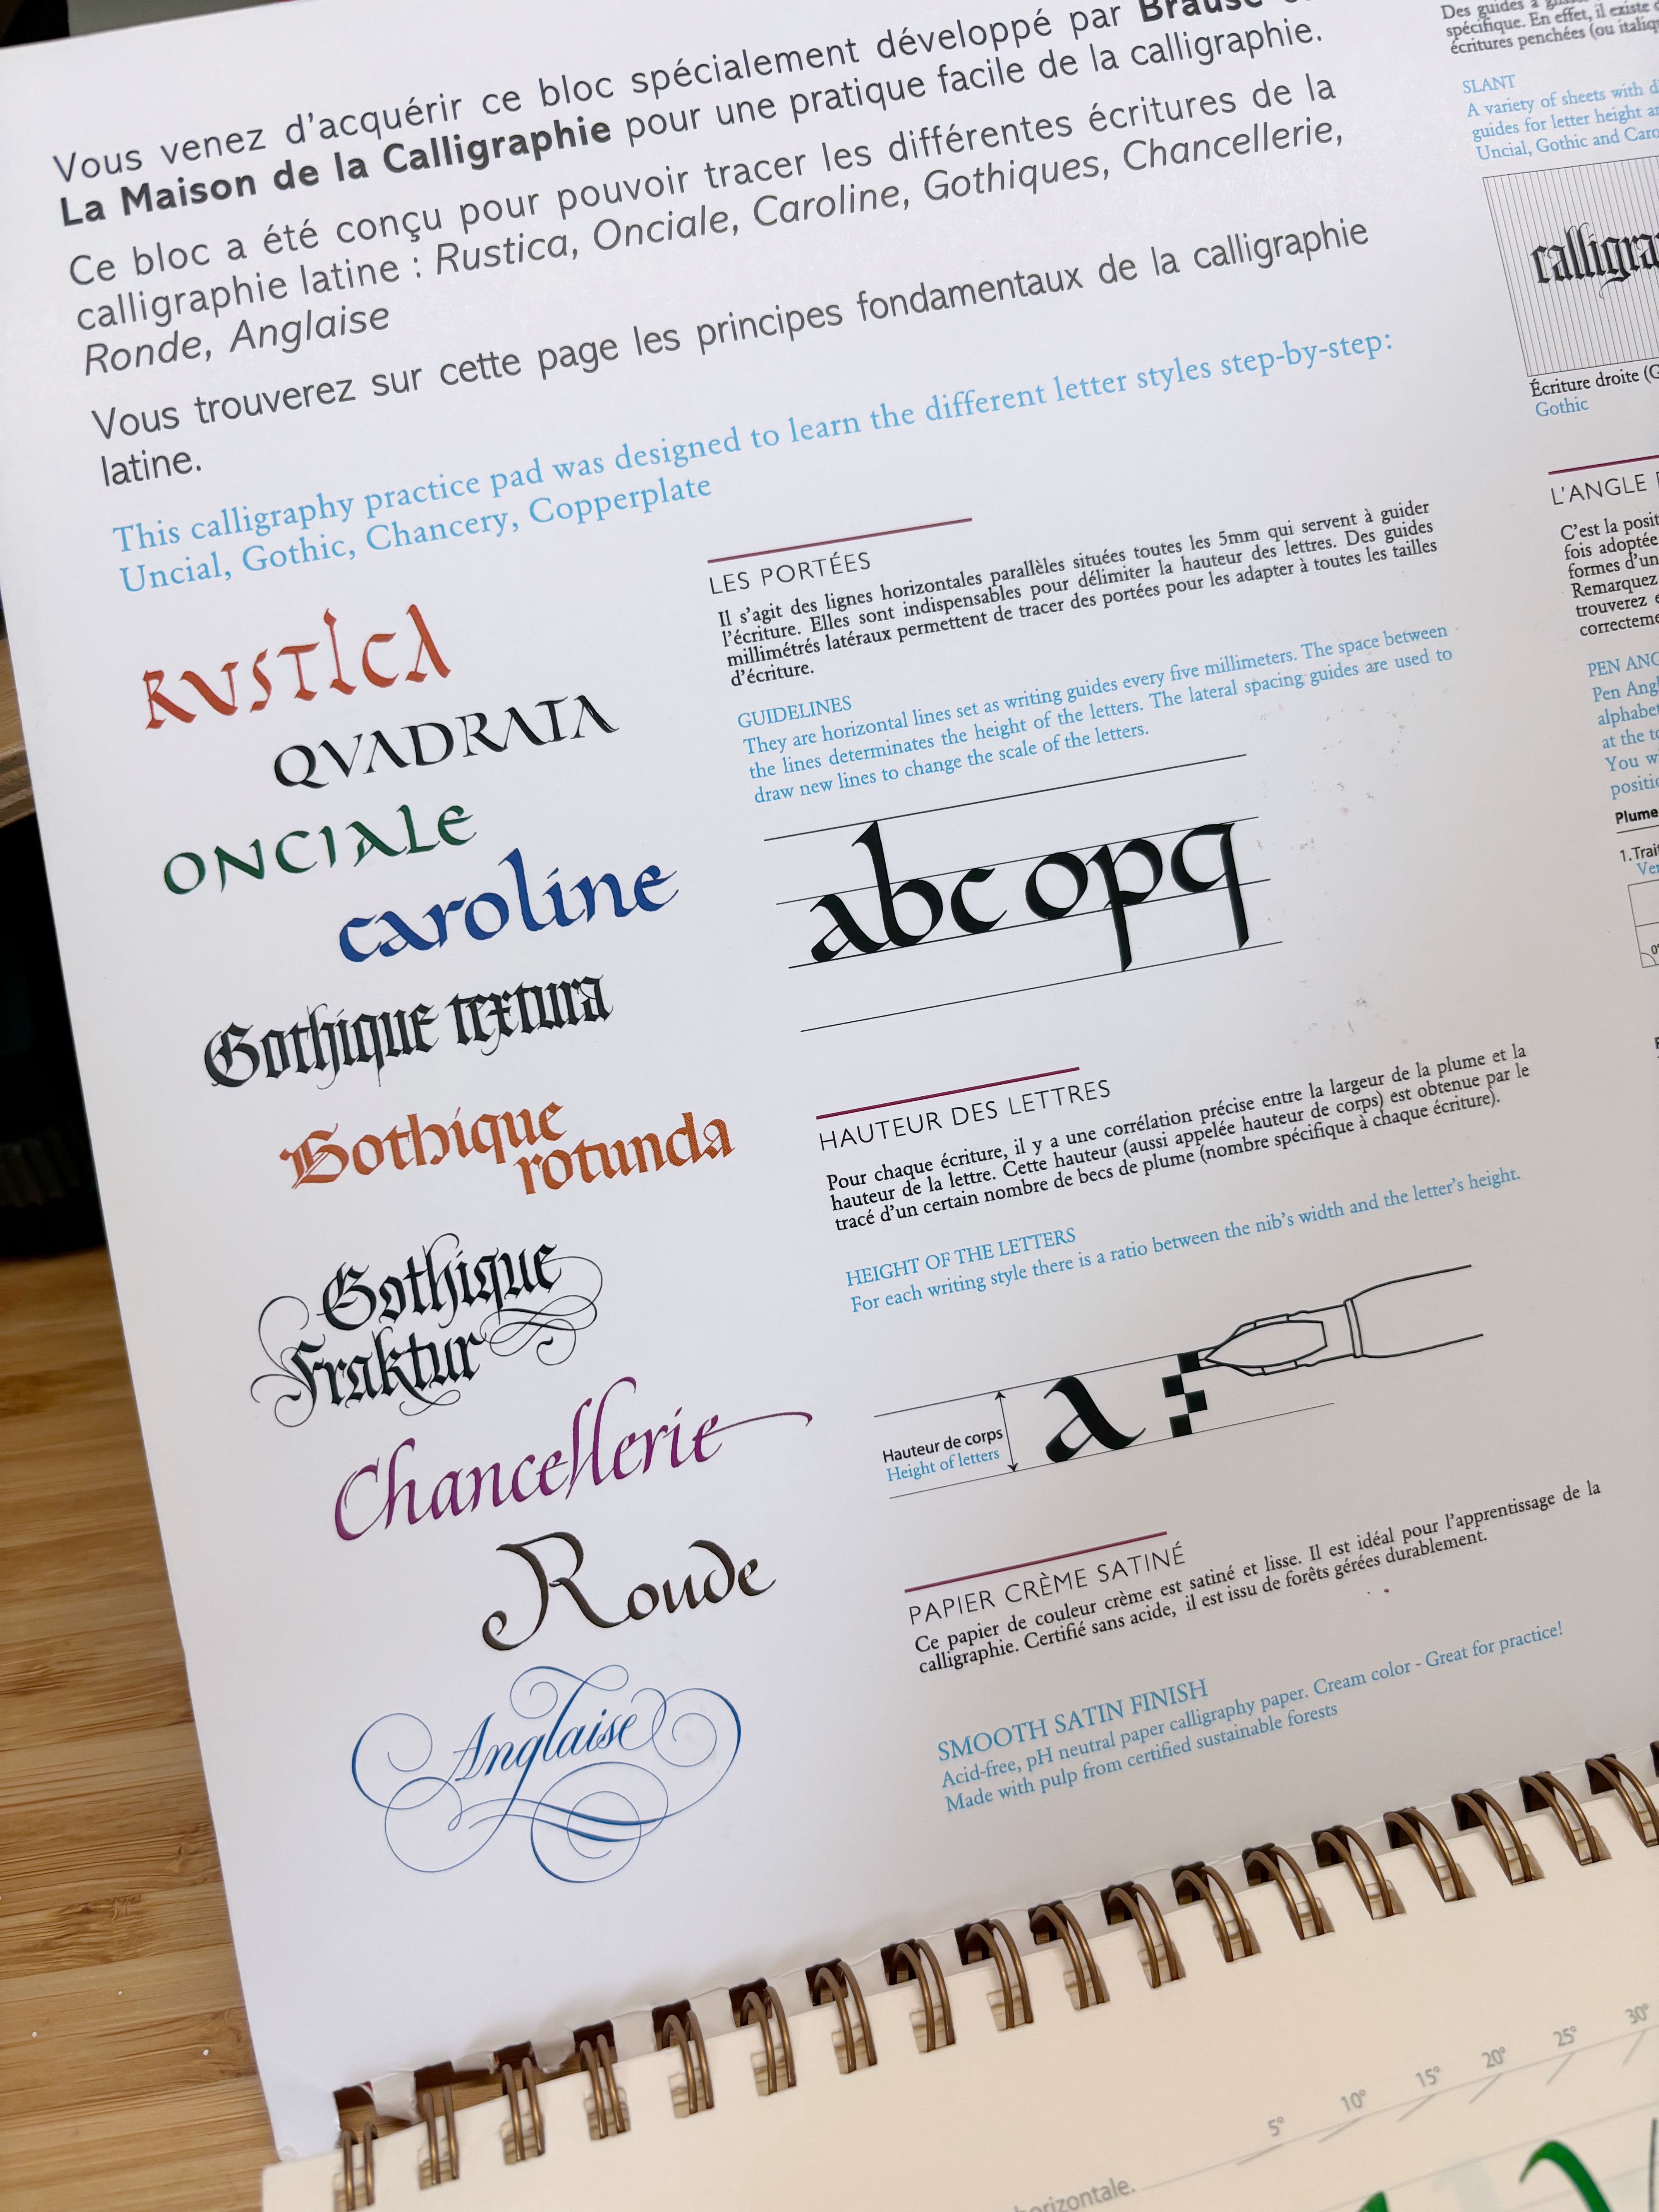 Vous venez d'acquérir ce bloc spécialement développé par Brause
La Maison de la Calligraphie pour une pratique facile de la calligraphie.
Ce bloc a été conçu pour pouvoir tracer les différentes écritures de la
calligraphie latine : Rustica, Onciale, Caroline, Gothiques, Chancellerie,
Ronde, Anglaise
Vous trouverez sur cette page les principes fondamentaux de la calligraphie
latine.
This calligraphy practice pad was designed to learn the different letter styles step-by-step:
Uncial, Gothic, Chancery, Copperplate
RVSTICA
QVADRATA
ONCIALE
caroline
Gothique textura
Gothique
rotunda
Gothique
Fraktur
Chancellerie
Ronde
Anglaise
LES PORTÉES
Il s'agit des lignes horizontales parallèles situées toutes les 5mm qui servent à guider
l'écriture. Elles sont indispensables pour délimiter la hauteur des lettres. Des guides
millimétrés latéraux permettent de tracer des portées pour les adapter à toutes les tailles
d'écriture.
GUIDELINES
They are horizontal lines set as writing guides every five millimeters. The space between
the lines determinates the height of the letters. The lateral spacing guides are used to
draw new lines to change the scale of the letters.
abc opq
HAUTEUR DES LETTRES
Pour chaque écriture, il y a une corrélation précise entre la largeur de la plume et la
hauteur de la lettre. Cette hauteur (aussi appelée hauteur de corps) est obtenue par le
tracé d'un certain nombre de becs de plume (nombre spécifique à chaque écriture).
HEIGHT OF THE LETTERS
For each writing style there is a ratio between the nib's width and the letter's height.
Hauteur de corps
Height of letters
a
PAPIER CRÈME SATINÉ
Ce papier de couleur crème est satiné et lisse. Il est idéal pour l'apprentissage de la
calligraphie. Certifié sans acide, il est issu de forêts gérées durablement.
SMOOTH SATIN FINISH
Acid-free, pH neutral paper calligraphy paper. Cream color - Great for practice!
Made with pulp from certified sustainable forests
Des guides à
spécifique. En effet, il existe
écritures penchées (ou
SLANT
A variety of sheets with
guides for letter height
Uncial, Gothic and
Écriture droite
Gothic
L'ANGLE
C'est la
fois adoptée
formes d'un
Remarquez
trouverez
PEN
Pen
at the
You
Plume
1.
5° 10° 15° 20° 25° 30°